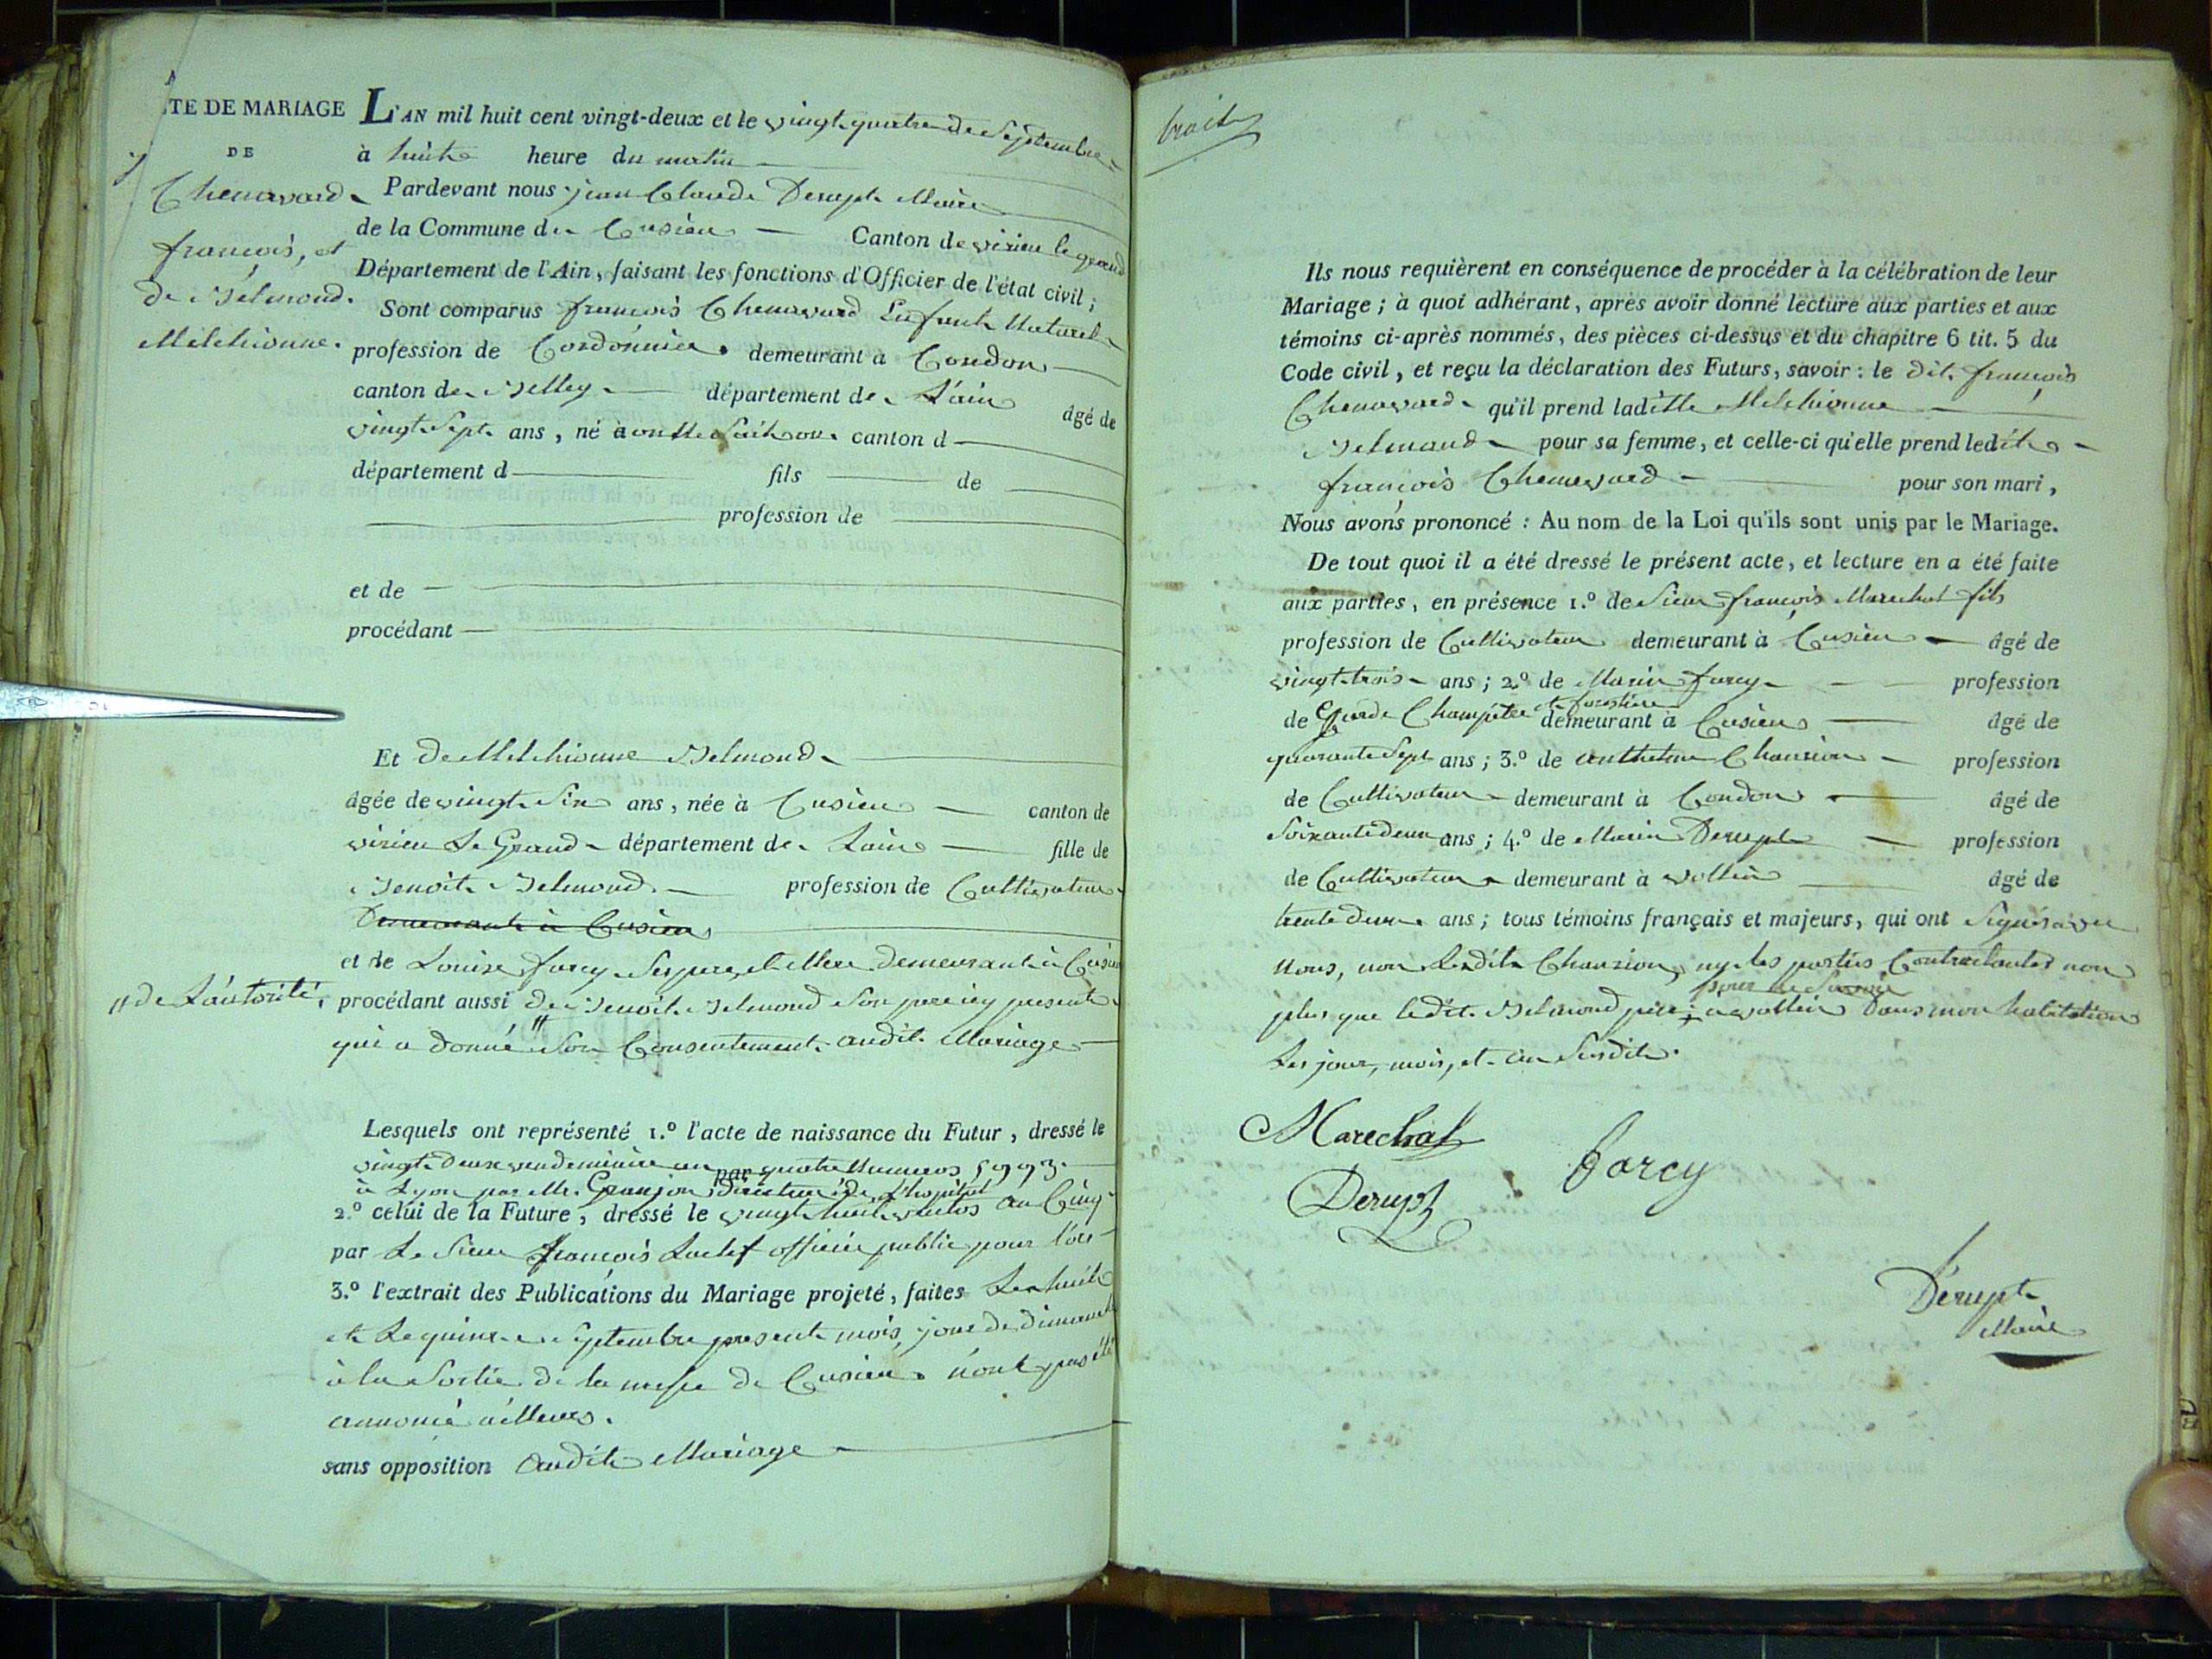 TE DE MARIAGE
DE
Chenavard
françois, et
de Belmond
Melchionne.
"de L'autorité,
L'AN mil huit cent vingt-deux et le vingt quatre de Septembre
à huit heure du matin
Pardevant nous jean Claude Derupt Maire
de la Commune de Cusieu Canton de virieu le grand
Département de l'Ain, faisant les fonctions d'Officier de l'état civil ;
Sont comparus françois Chenavard Enfant Naturel
profession de Cordonnier demeurant à Condon
canton de Belley département de L'ain âgé de
vingt Sept ans, né à canton d
département d fils de
profession de
et de
procédant
Et de Melchionne Belmond
âgée de vingt Six ans, née à Cusieu canton de
virieu Le Grand département de Lain fille de
Benoit Belmond profession de Cultivateur
Demeurant à Cusieu
et de Louise farcy Ses pere et Mere demeurant à Cusieu
procédant aussi de Benoit Belmond Son pere icy present
qui a donné " Son Consentement audit Mariage
Lesquels ont représenté 1.º l'acte de naissance du Futur, dressé le
vingt deux vendemiaire an quatre Numeros 5993.
par
à Lyon par Mr. Granjon Directeur de L'hopital
2.º celui de la Future, dressé le vingt huit ventos an Cinq
par Le Sieur françois officier public pour lors
3.º l'extrait des Publications du Mariage projeté, faites Le huit
et Le quinze Septembre present mois, jour de dimanche
à la Sortie de la messe de Cusieu n'ont pas été
annoncé ailleurs.
sans opposition audit Mariage
Ils nous requièrent en conséquence de procéder à la célébration de leur
Mariage ; à quoi adhérant, après avoir donné lecture aux parties et aux
témoins ci-après nommés, des pièces ci-dessus et du chapitre 6 tit. 5 du
Code civil, et reçu la déclaration des Futurs, savoir : le dit françois
Chenavard qu'il prend laditte Melchionne
Belmond pour sa femme, et celle-ci qu'elle prend ledit
françois Chenavard pour son mari,
Nous avons prononcé : Au nom de la Loi qu'ils sont unis par le Mariage.
De tout quoi il a été dressé le présent acte, et lecture en a été faite
aux parties, en présence 1.º de Sieur françois Marechal fils
profession de Cultivateur demeurant à Cusieu âgé de
vingt trois ans ; 2.º de Marin farcy profession
de Garde Champêtre et forestier demeurant à Cusieu âgé de
quarante Sept ans ; 3.º de anthelme Chansion profession
de Cultivateur demeurant à Condon âgé de
Soixante deux ans ; 4.º de Marin Derupt profession
de Cultivateur demeurant à vollien âgé de
trente deux ans ; tous témoins français et majeurs, qui ont Signés avec
Nous, non Ledit Chansion, ny les parties Contractantes non
pour ne Savoir
plus que ledit Belmond père + à vollien dans mon habitation
Les jour, mois, et an Susdits.
Marechal
farcy
Derupt
Derupt
Maire